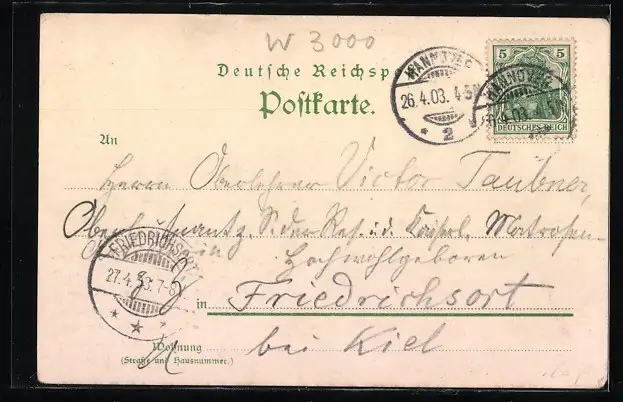 W 3000
Deutsche Reichsp
Postkarte.
HANNOVER
26.4.03. 4-5N
* 2
5 5
DEUTSCHES REICH
HANNOVER
4.03. 5N
An
Herrn Oberlehrer Victor Taubner,
S. der Res. i. d. Kaiserl. Matrosen-
Hochwohlgeboren
FRIEDRICHSORT
27.4.03. 7-8
in Friedrichsort
Wohnung
bei Kiel
(Straße und Hausnummer.)